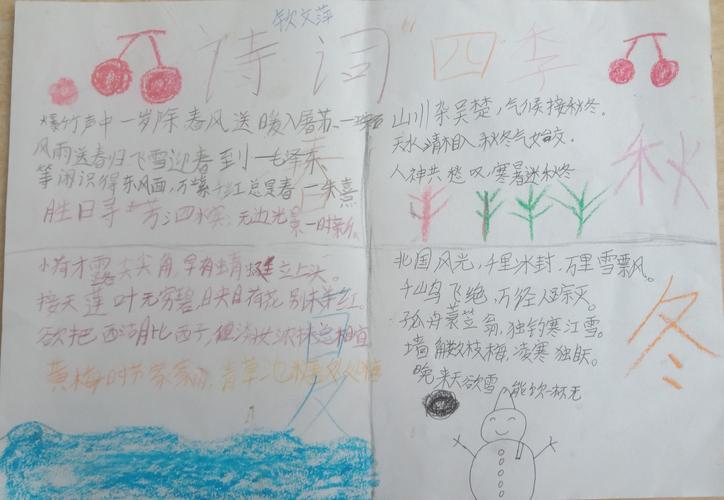 钦文萍
诗词四季
爆竹声中一岁除 春风送暖入屠苏
风雨送春归 飞雪迎春到 一毛泽东
等闲识得东风面,万紫千红总是春 一朱熹
胜日寻芳泗水滨,无边光景一时新。
春
小荷才露尖尖角,早有蜻蜓立上头。
接天莲叶无穷碧,映日荷花别样红
欲把西湖比西子,淡妆浓抹总相宜
黄梅时节家家雨,青草池塘处处蛙
夏
山川杂吴楚,气候接秋冬。
天水清相入 秋冬气始交。
人神共愁叹,寒暑迷秋冬
秋
北国风光,千里冰封,万里雪飘。
千山鸟飞绝,万径人踪灭。
孤舟蓑笠翁,独钓寒江雪。
墙角数枝梅,凌寒独自
晚来天欲雪 能饮一杯无
冬